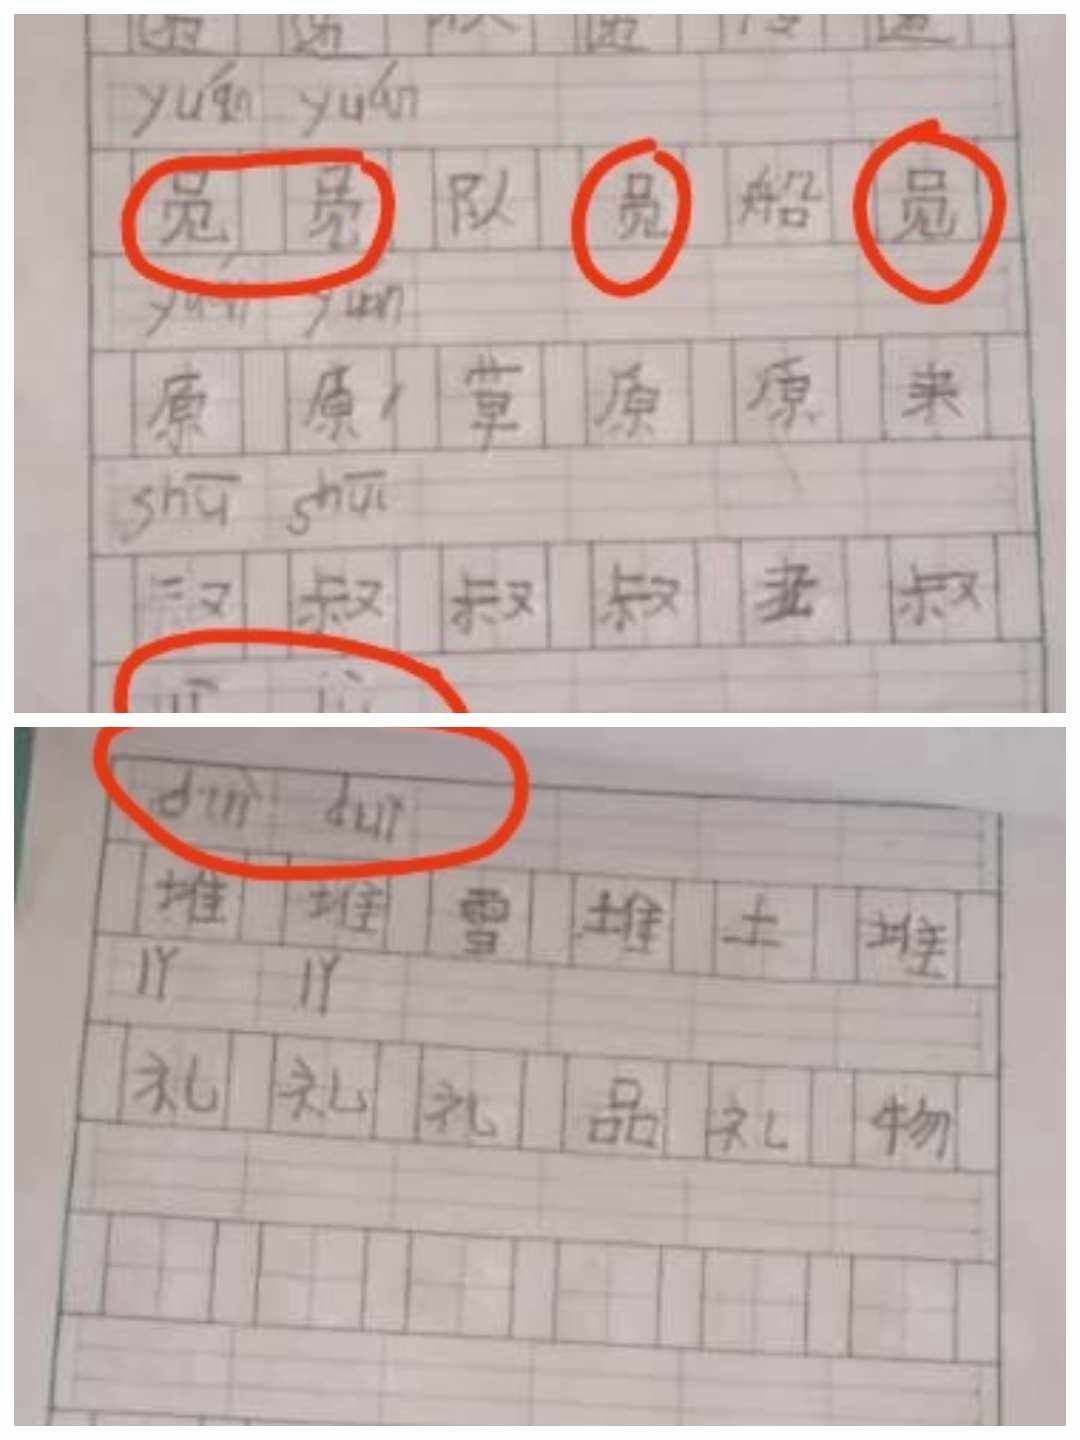 yuán yuán
员 员 队 员 船 员
yuán yuán
原 原 草 原 原 来
shū shū
叔 叔 叔 叔 叔
duī duī
堆 堆 雪 堆 土 堆
lǐ lǐ
礼 礼 礼 品 礼 物